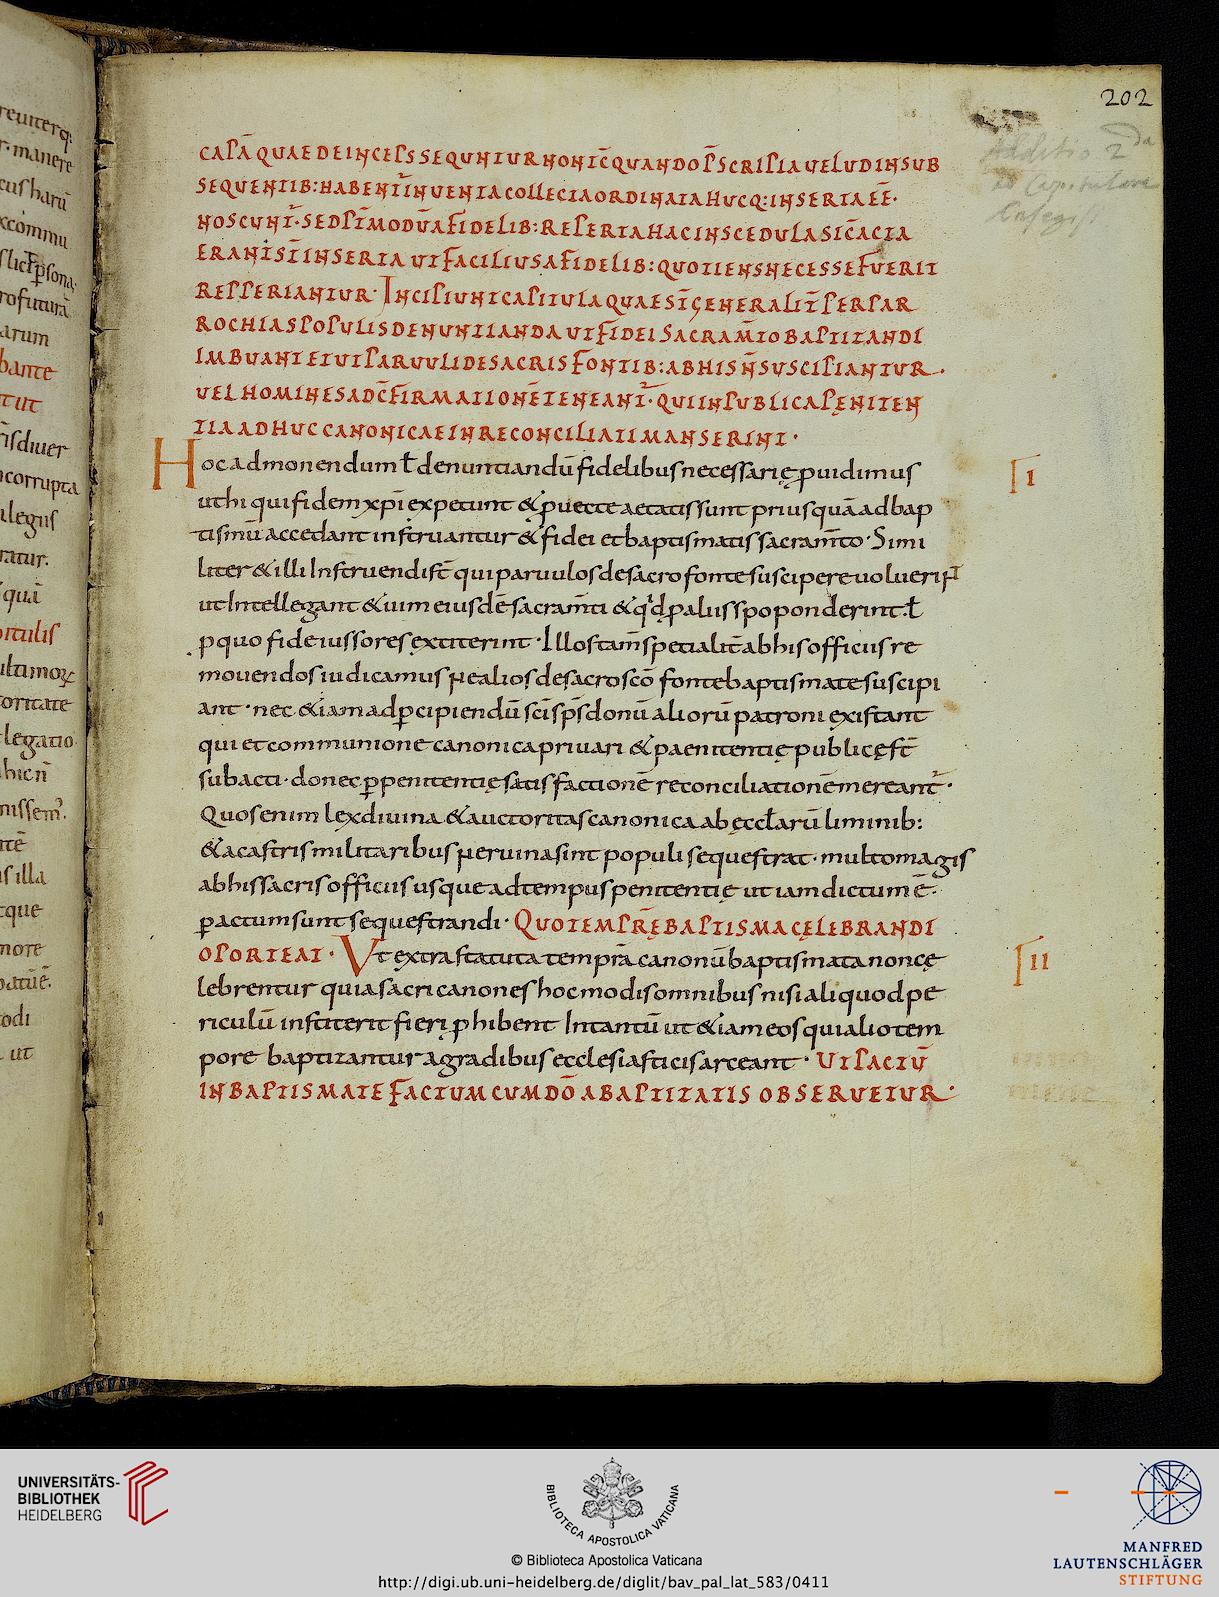 202
Additio 2da
ad Capitulare
Ansegisi
CAPĀ QUAE DEINCEPS SEQUNTUR NON IC̄ QUANDO P̄SCRIPTA VEL UD IN SUB
SEQUENTIB: HABENT̄ INVENTA COLLECTA ORDINATA HUCQ: INSERTA EĒ·
NOSCUNT̄· SED PT̄MODŪ A FIDELIB: REPERTA HAC IN SCEDULA SIC̄ ACTA
ERANT IST̄ INSERTA UT FACILIUS A FIDELIB: QUOTIENS NECESSE FUERIT
REPPERIANTUR· INCIPIUNT CAPITULA QUAE ST̄ GENERALIT̄ PER PAR
ROCHIAS POPULIS DENUNTIANDA UT FIDEI SACRAM̄TO BAPTIZANDI
IMBUANT ET UT PARVULI DE SACRIS FONTIB: AB HIS N̄ SUSCIPIANTUR·
VEL HOMINES AD C̄FIRMATIONĒ TENEANT̄· QUI IN PUBLICA PĘNITEN
TIA ADHUC CANONICAE INRECONCILIATI MANSERINT·
Hoc admonendum ł denuntiandū fidelibus necessarię p̱uidimus
ut hi qui fidem xp̄i expetunt & p̱uecte aetatis sunt priusquā ad bap
tismū accedant instruantur & fidei et baptismatis sacram̄to· Simi
liter & illi Instruendi st̄ qui paruulos de sacro fonte suscipere uoluerint
ut Intellegant & uim eiusdē sacram̄ti & qd̄ p̱ aliis spoponderint ł
p̱ quo fideiussores extiterint· Illos tam̄ specialit̄ ab his officiis re
mouendos iudicamus ne alios de sacrosc̄o fonte baptismate suscipi
ant· nec &iam ad p̱cipiendū sc̄i sp̄s donū aliorū patroni existant
qui et communione canonica priuari & paenitentię publicę st̄
subacti· donec p̱ penitentię satisfactionē reconciliationē mereant̄·
Quos enim lex diuina & auctoritas canonica ab ęccłarū liminib:
& a castris militaribus ne ruina sint populi sequestrat· multo magis
ab his sacris officiis usque ad tempus penitentię ut iam dictum ē·
p̱actum sunt sequestrandi· QUO TEMPR̄Ę BAPTISMA CĘLEBRANDI
OPORTEAT· Vt extra statuta tempr̄a canonū baptismata non cę
lebrentur quia sacri canones hoc modis omnibus nisi aliquod pe
riculū institerit fieri p̱hibent Intantū ut &iam eos qui alio tem
pore baptizantur a gradibus ecclesiasticis arceant· UT PACTŪ
IN BAPTISMATE FACTUM CUM DŌ A BAPTIZATIS OBSERVETUR·
I
II
UNIVERSITÄTS-
BIBLIOTHEK
HEIDELBERG
BIBLIOTECA APOSTOLICA VATICANA
© Biblioteca Apostolica Vaticana
http://digi.ub.uni-heidelberg.de/diglit/bav_pal_lat_583/0411
MANFRED
LAUTENSCHLÄGER
STIFTUNG